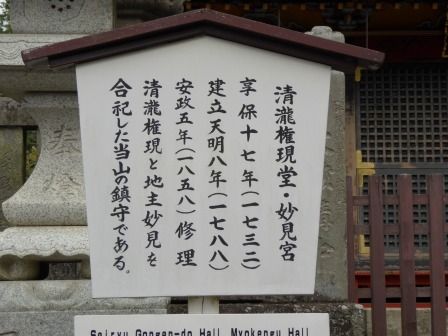 清瀧権現堂・妙見宮
享保十七年(一七三二)
建立天明八年(一七八八)
安政五年(一八五八)修理
清瀧権現と地主妙見を
合祀した当山の鎮守である。
Seiryu Gongen-do Hall, Myokengu Hall